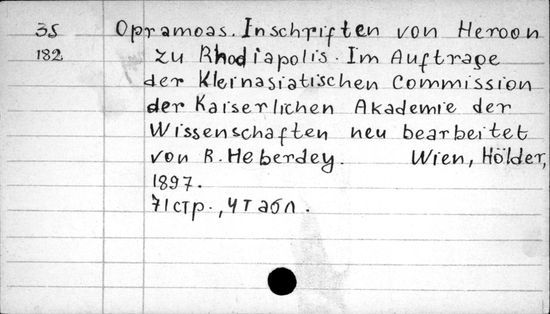 35 Opramoas. Inschriften von Heroon
182 zu Rhodiapolis. Im Auftrage
der Kleinasiatischen Commission
der Kaiserlichen Akademie der
Wissenschaften neu bearbeitet
von R. Heberdey. Wien, Hölder,
1897.
71 стр., 4 табл.